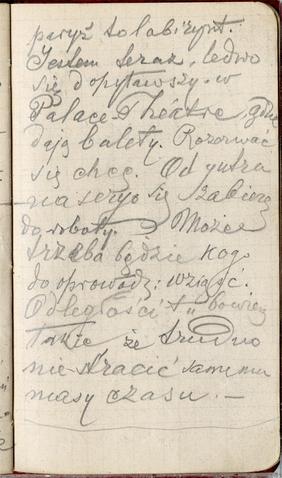 paryż to labirynt.
Jestem teraz, ledwo
się dopytawszy w
Palace-Théâtre, gdzie
dają balety. Rozerwać
się chcę. Od jutra
na seryo się zabiorę
do roboty. Może
trzeba będzie kogo
do oprowadz: wziąść.
Odległości tu bowiem
takie że trudno
nie stracić samemu
masy czasu. —